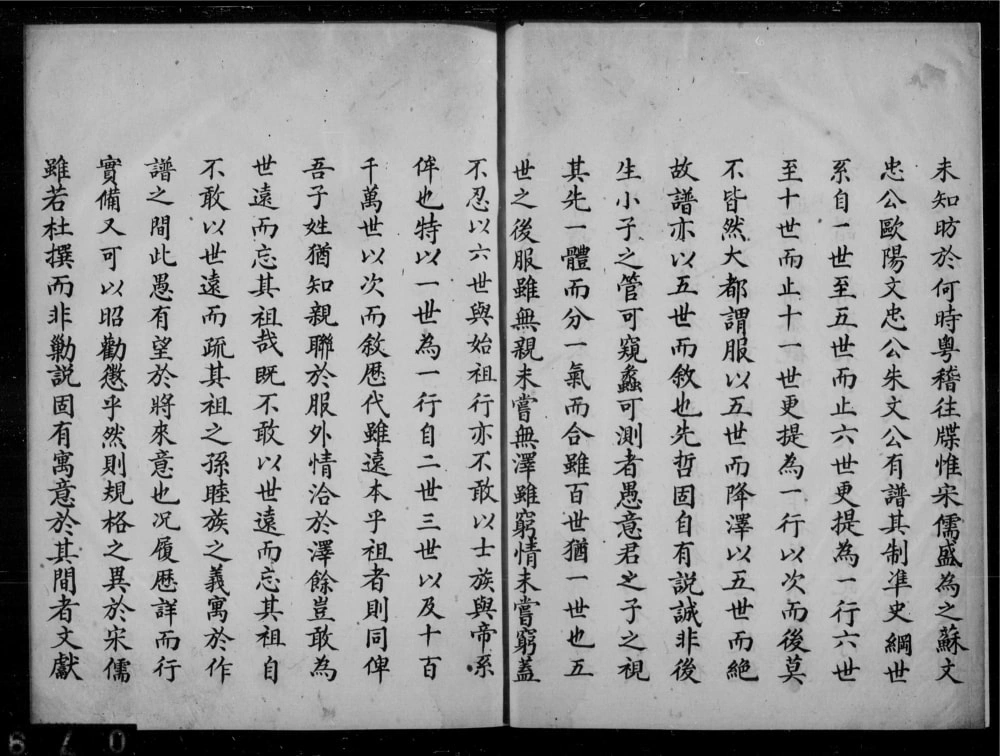 未知昉於何時粤稽往牒惟宋儒盛為之蘇文
忠公歐陽文忠公朱文公有譜其制准史綱世
系自一世至五世而止六世更提為一行六世
至十世而止十一世更提為一行以次而後莫
不皆然大都謂服以五世而降澤以五世而絶
故譜亦以五世而敘也先哲固自有說誠非後
生小子之管可窺蠡可測者愚意君之子之視
其先一體而分一氣而合雖百世猶一世也五
世之後服雖無親未嘗無澤雖窮情未嘗窮蓋
不忍以六世與始祖行亦不敢以士族與帝系
侔也特以一世為一行自二世三世以及十百
千萬世以次而敘歷代雖遠本乎祖者則同俾
吾子姓猶知親聯於服外情洽於澤餘豈敢為
世遠而忘其祖哉既不敢以世遠而忘其祖自
不敢以世遠而疏其祖之孫睦族之義寓於作
譜之間此愚有望於將來意也况履歷詳而行
實備又可以昭勸懲乎然則規格之異於宋儒
雖若杜撰而非勦説固有寓意於其間者文獻
078